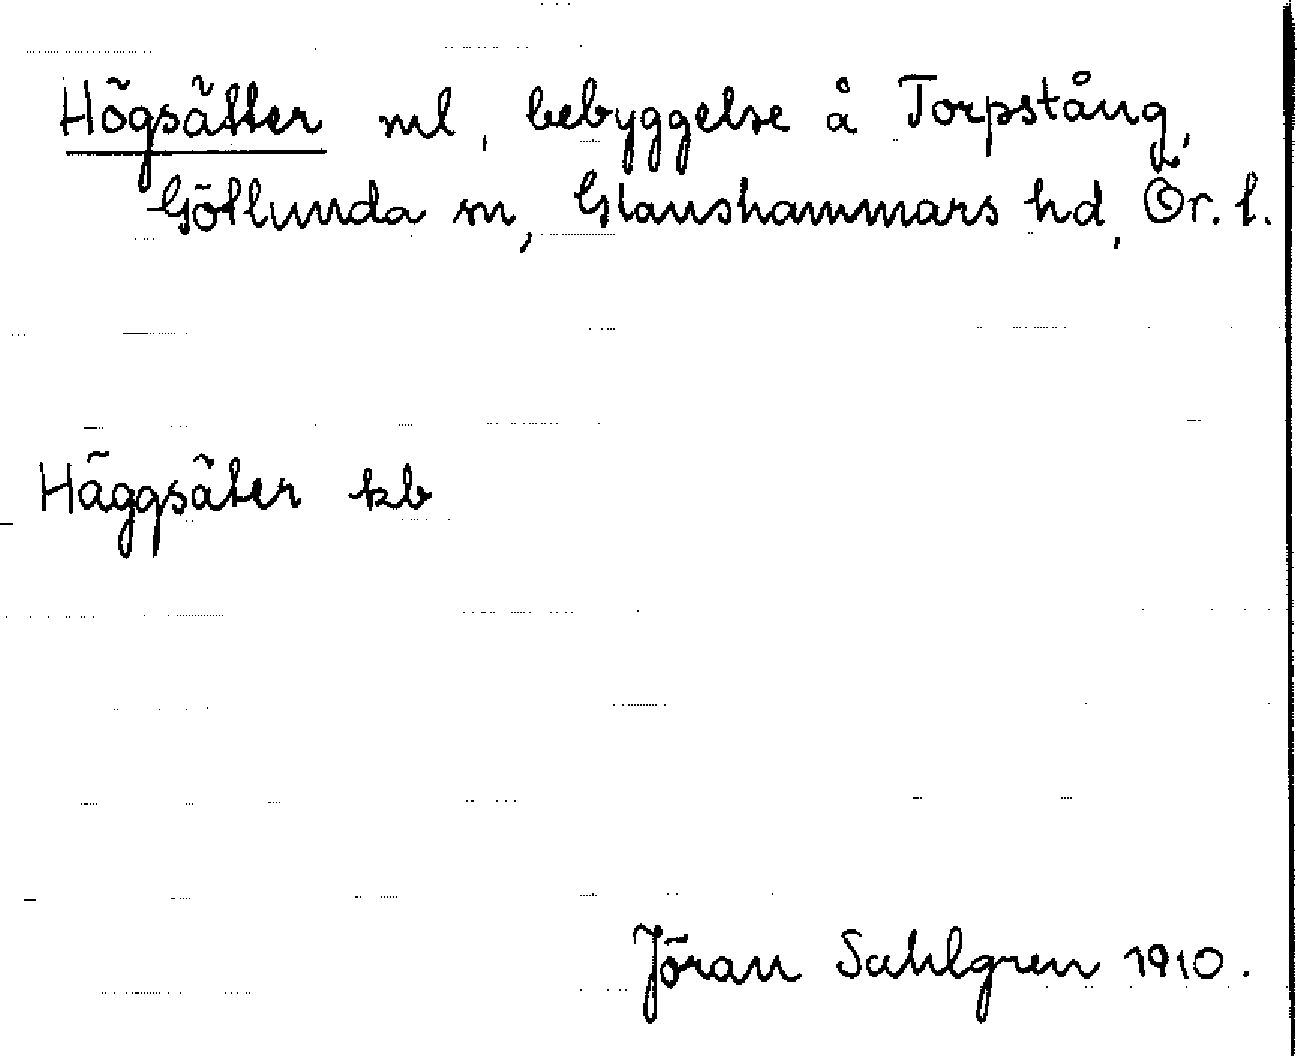 Högsätter ml, bebyggelse å Torpstång,
Götlunda sn, Glanshammars hd, Ör. l.
Häggsäter kb
Jöran Sahlgren 1910.